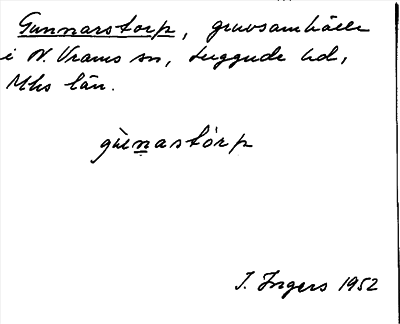 Gunnarstorp, gruvsamhälle
i N. Vrams sn, Luggude hd,
Mhs län.
gùnastórp
I. Ingers 1952